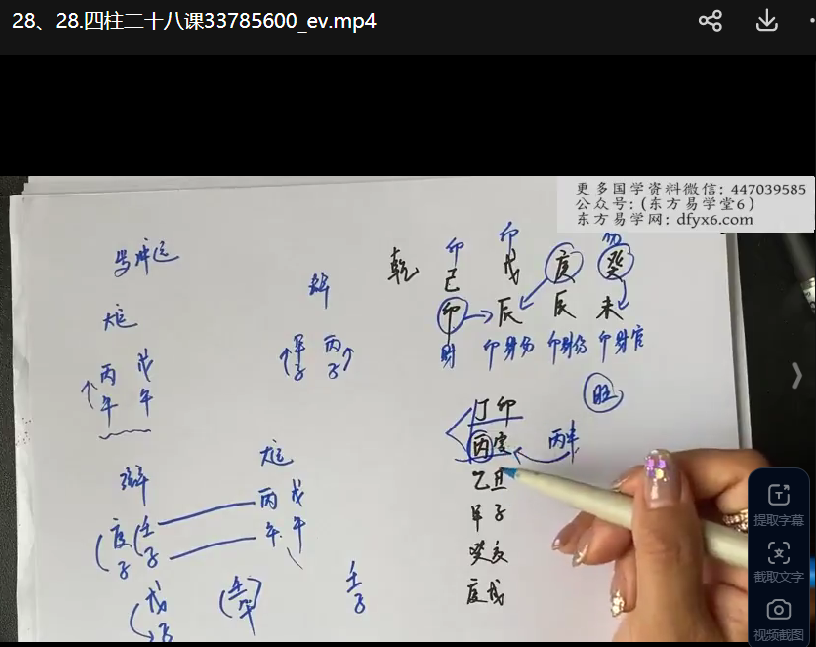 28、28.四柱二十八课33785600_ev.mp4
更多国学资料微信: 447039585
公众号:(东方易学堂6)
东方易学网: dfyx6.com
岁冲运
大运
丙 戊
午 午
流年
庚 壬
子 子
戊
子
大运
丙 戊
午 午
流年
甲 丙
子 子
壬
子
乾
卩 卩 伤
己 戊 庚 癸
卯 辰 辰 未
财 卩财伤 卩财伤 卩财官
旺
丁卯
丙寅
丙辛
乙丑
甲子
癸亥
庚戌
提取字幕
截取文字
视频截图